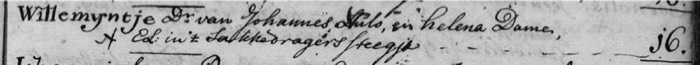 Willemÿntje Dr van Johannes Stulo, en helena Dame, 16.
Ed: in 't Sakkedragers Steegje